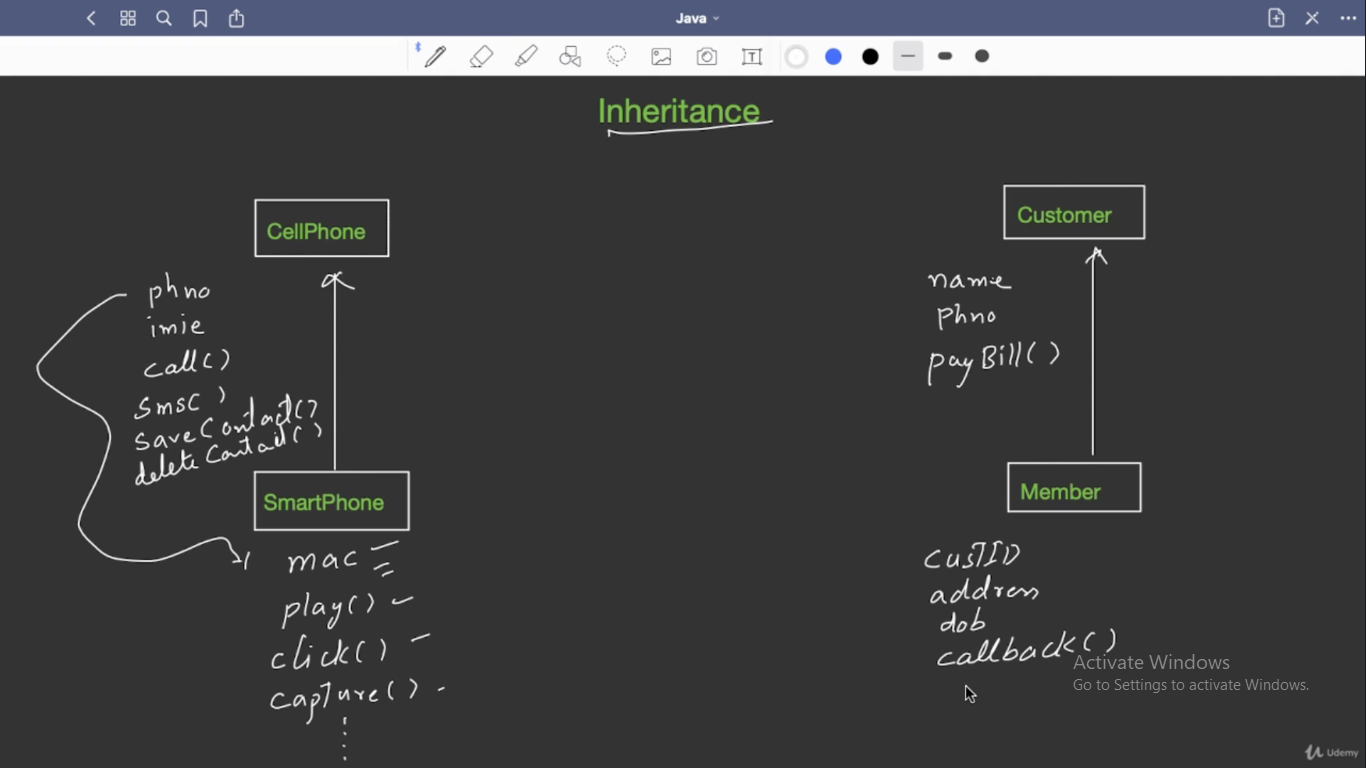 Java
T
Inheritance
CellPhone
phno
imie
call()
sms()
saveContact()
deleteContact()
SmartPhone
mac
play()
click()
capture()
Customer
name
Phno
payBill()
Member
CustID
address
dob
callback()
Activate Windows
Go to Settings to activate Windows.
Udemy